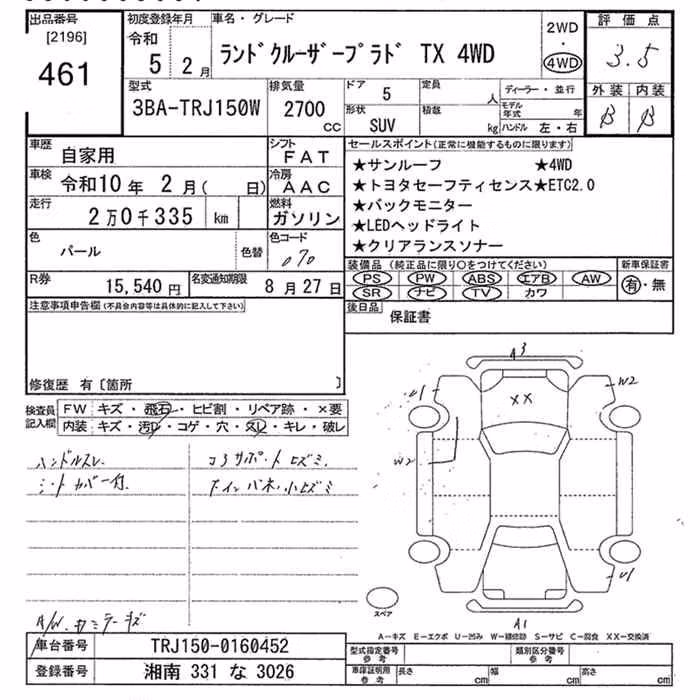 出品番号
[2196]
461
初度登録年月
令和
5 2月
車名・グレード
ランドクルーザープラド TX 4WD
2WD
・
4WD
評価点
3.5
外装 内装
B B
型式
3BA-TRJ150W
排気量
2700
cc
ドア 5
形状
SUV
定員
人
積載
kg
ディーラー・並行
モデル年式 年
ハンドル 左・右
車歴 自家用
シフト
FAT
車検 令和10年 2月( 日)
冷房
AAC
走行
2万0千335 km
燃料
ガソリン
色
パール
色替
色コード
070
R券
15,540円
名変通知期限
8月27日
セールスポイント(正常に機能するものに限ります)
★サンルーフ ★4WD
★トヨタセーフティセンス★ETC2.0
★バックモニター
★LEDヘッドライト
★クリアランスソナー
装備品(純正品に限り○をつけてください)
PS PW ABS エアB AW
SR ナビ TV カワ
新車保証書
有・無
後日品
保証書
注意事項申告欄(不具合内容等は具体的に記入して下さい)
修復歴 有〔箇所 〕
検査員記入欄
FW キズ・飛石・ヒビ割・リペア跡・×要
内装 キズ・汚レ・コゲ・穴・スレ・キレ・破レ
ハンドルスレ
シートカバー付
コアサポートヒズミ
A/W ガリキズ
A3
XX
U1
W2
W2
U1
A1
スペア
A-キズ E-エクボ U-凹み W-補修跡 S-サビ C-腐食 XX-交換済
車台番号 TRJ150-0160452
登録番号 湘南 331 な 3026
型式指定番号
参考
類別区分番号
参考
車庫証明用
参考
長さ cm
幅 cm
高さ cm